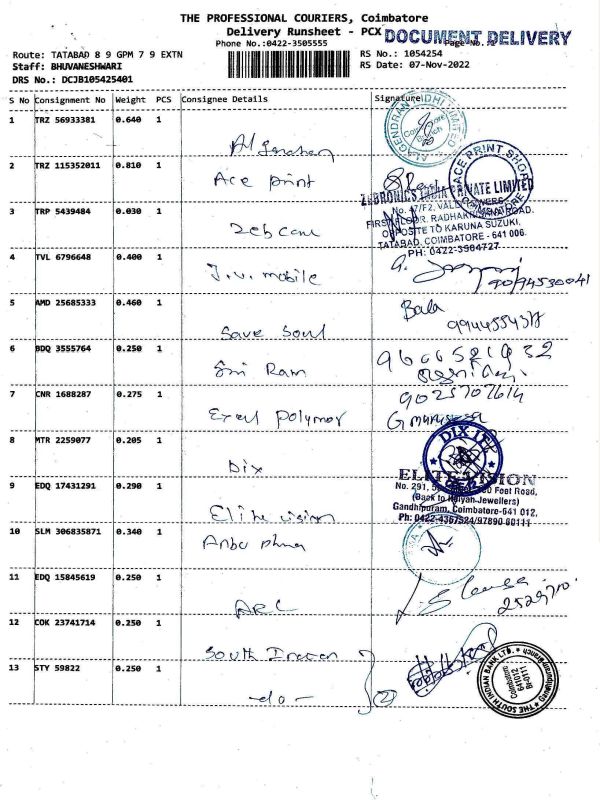 THE PROFESSIONAL COURIERS, Coimbatore
Delivery Runsheet - PCX
DOCUMENT DELIVERY
Phone No.:0422-3505555
Route: TATABAD 8 9 GPM 7 9 EXTN
RS No.: 1054254
Staff: BHUVANESHWARI
RS Date: 07-Nov-2022
DRS No.: DCJB105425401
S No Consignment No Weight PCS Consignee Details Signature
1 TRZ 56933381 0.640 1
2 TRZ 115352011 0.810 1 Ace print
ACE PRINT SHOP
ZEBRONICS INDIA PRIVATE LIMITED
No. 47/F2, VALLI TOWERS
FIRST FLOOR, RADHAKRISHNA ROAD,
OPPOSITE TO KARUNA SUZUKI,
TATABAD, COIMBATORE - 641 006.
PH: 0422-3984727
3 TRP 5439484 0.030 1
4 TVL 6796648 0.400 1 J.V. mobile
9094530041
5 AMD 25685333 0.460 1 Save Soul
Bala
6 BDQ 3555764 0.250 1 Sri Ram
7 CNR 1688287 0.275 1 Excel Polymer
9025707614
8 MTR 2259077 0.205 1 Dix
9 EDQ 17431291 0.290 1 Elite vision
ELITE VISION
Feet Road,
(Back to Kalyan Jewellers)
Gandhipuram, Coimbatore-641 012,
Ph: 0422-4367524/97890 60111
10 SLM 306835871 0.340 1
11 EDQ 15845619 0.250 1
12 COK 23741714 0.250 1 South Indian
13 STY 59822 0.250 1 -do-
2
THE SOUTH INDIAN BANK LTD.
Coimbatore
641012